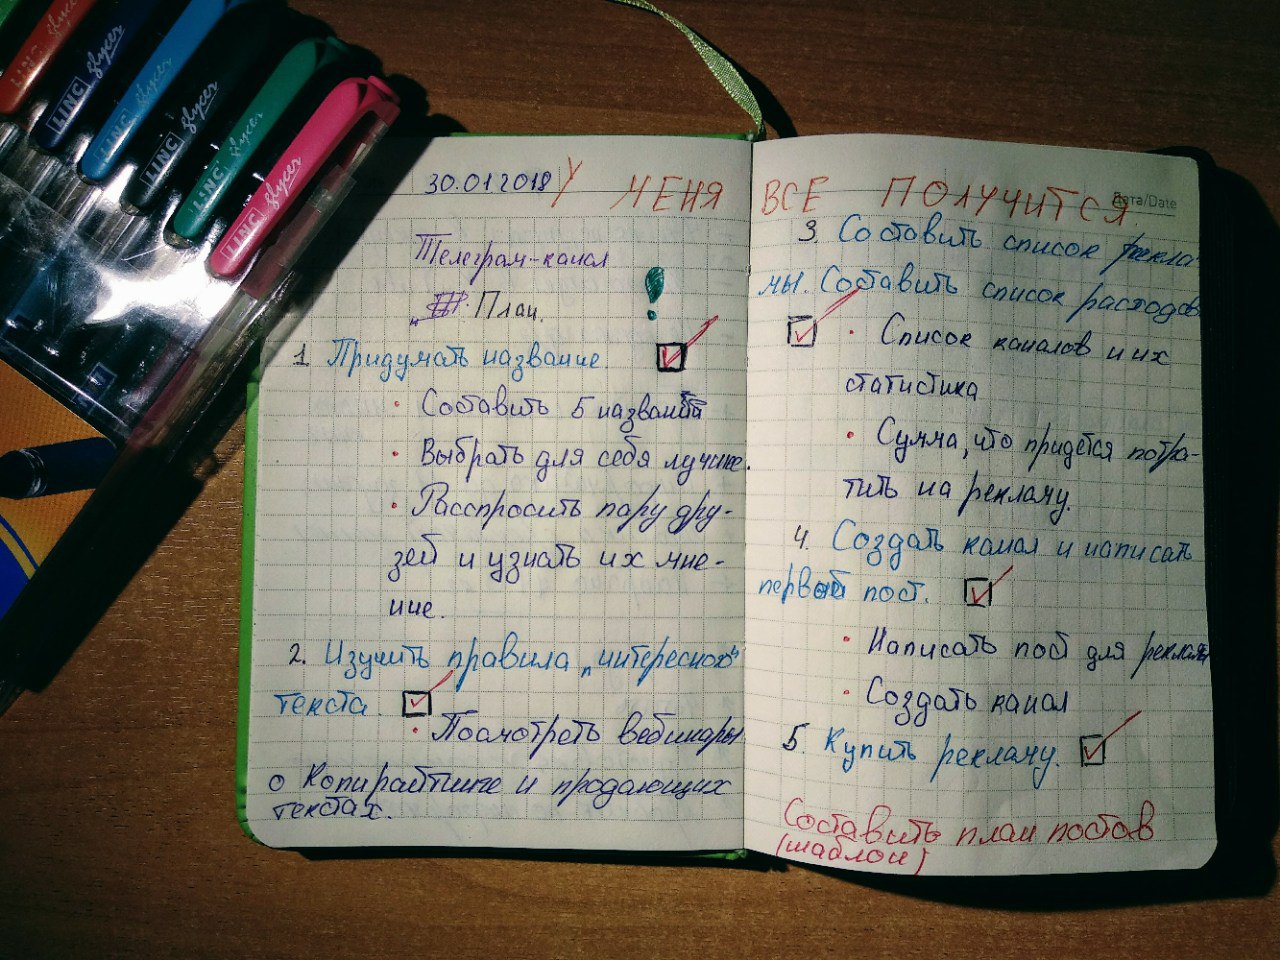 LINC glycer
LINC glycer
LINC glycer
LINC glycer
LINC glycer
LINC glycer
30.01.2018 У МЕНЯ
Телеграм-канал
План.
1 Придумать название.
• Составить 5 названий
• Выбрать для себя лучшее.
• Расспросить пару дру-
зей и узнать их мне-
ние.
2. Изучить правила „интересного"
текста.
• Посмотреть вебинары
о Копирайтинге и продающих
текстах.
ВСЕ ПОЛУЧИТСЯ
Дата/Date
3. Составить список рекла-
мы. Составить список расходов
• Список каналов и их
статистика
• Сумма, что придётся потра-
тить на рекламу.
4. Создать канал и написать
первый пост.
• Написать пост для рекламы
• Создать канал
5. Купить рекламу.
Составить план постов
(шаблон)